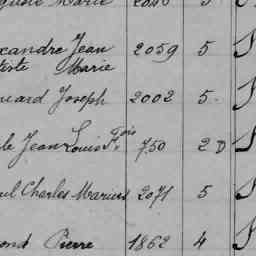 Marie 2040 5
xandre Jean 2059 5
tiste Marie
ard Joseph 2002 5
le Jean Louis F.ois 750 2 D
ul Charles Marius 2071 5
ond Pierre 1862 4